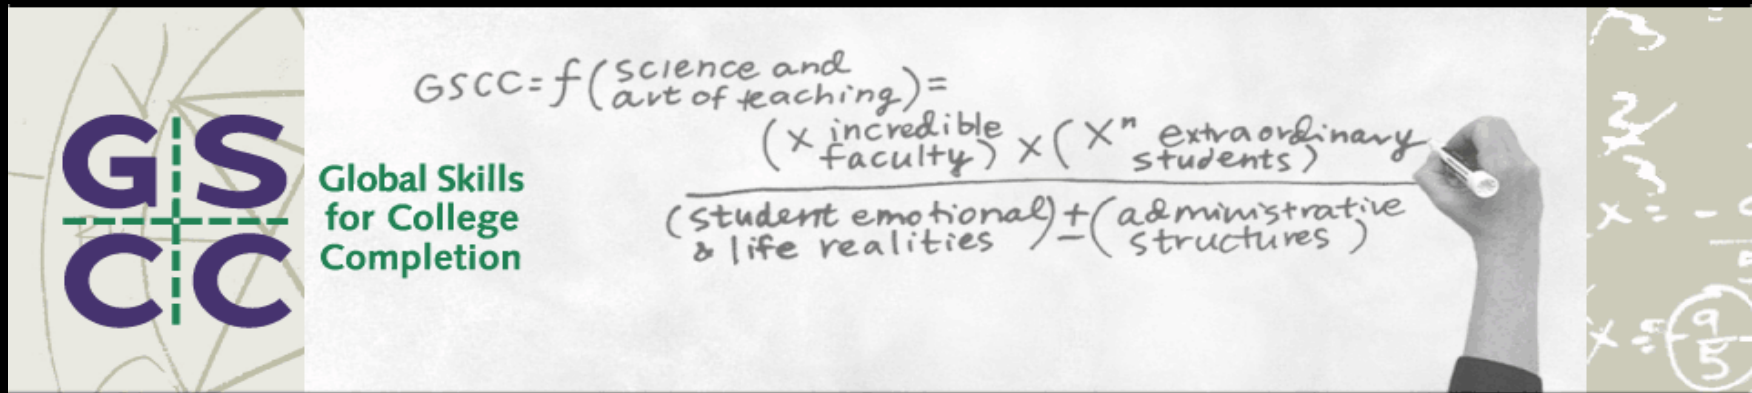 GS
CC
Global Skills
for College
Completion
GSCC=f(science and
art of teaching)=
(x incredible
faculty) x (Xⁿ extraordinary
students)
(student emotional) ± (administrative
& life realities
structures)
x = -
x =
9
5